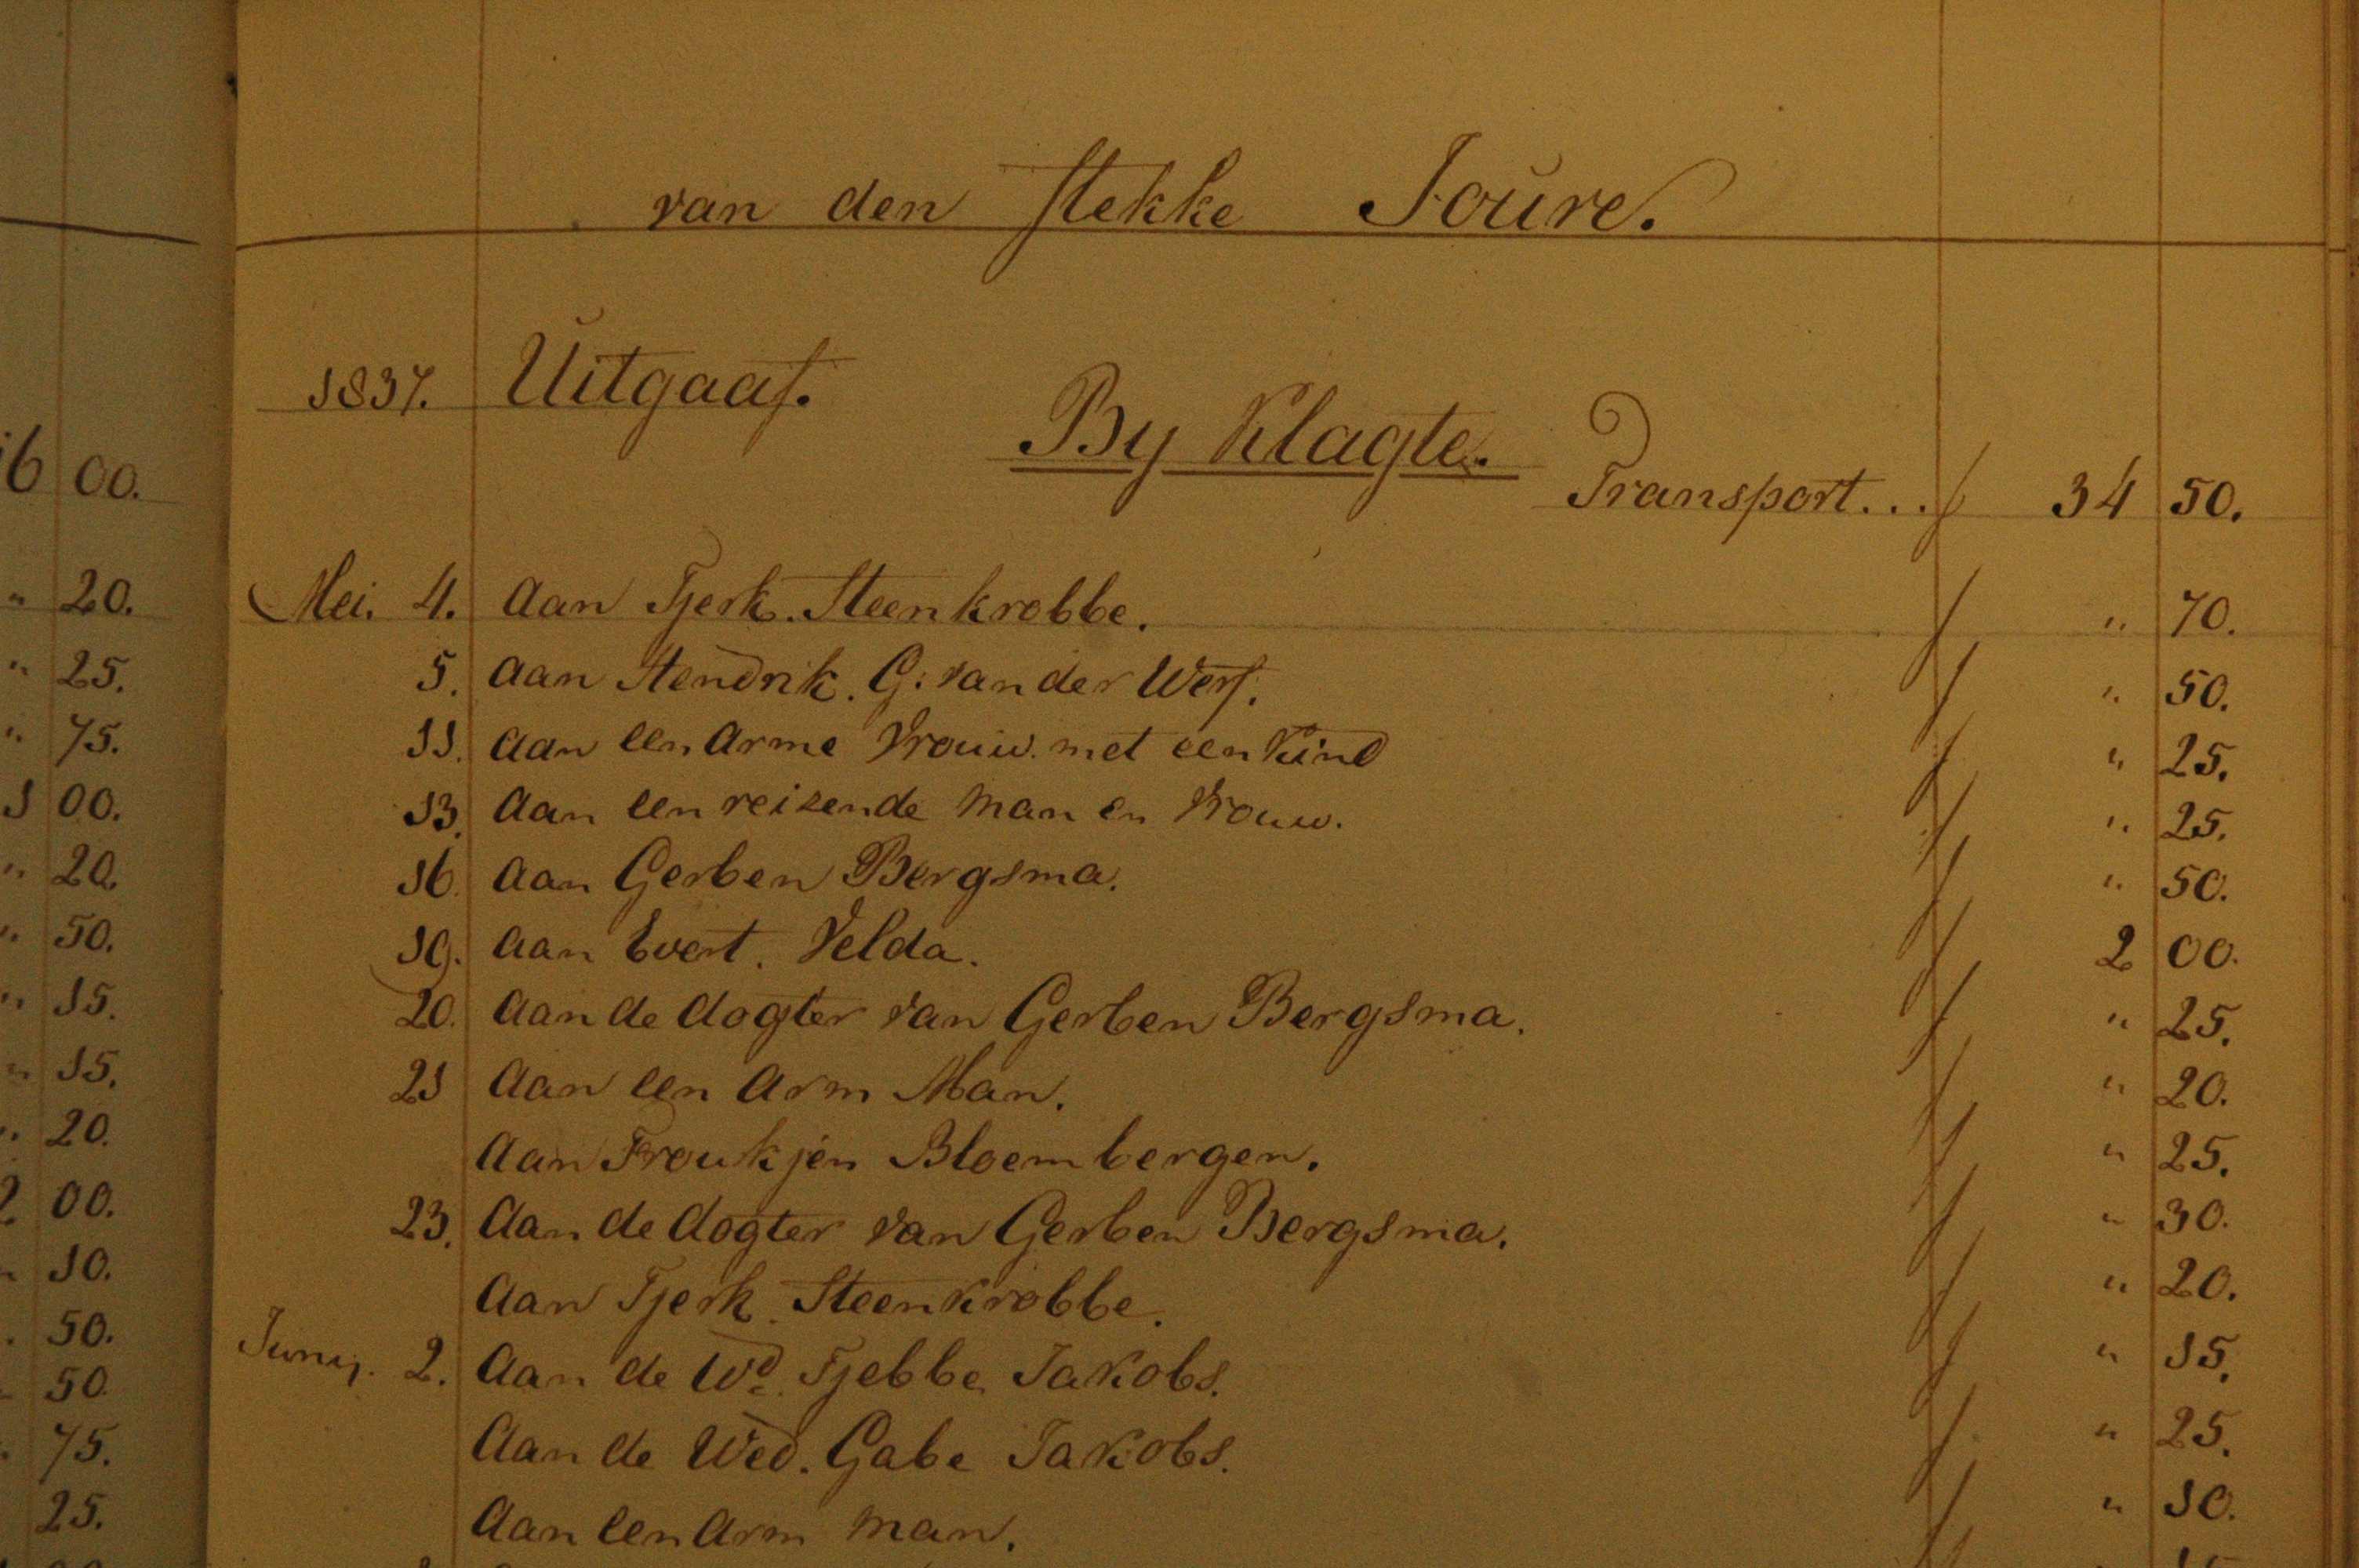 6 00.
" 20.
" 25.
" 75.
1 00.
" 20.
" 50.
" 15.
" 15.
" 20.
2 00.
" 10.
" 50.
" 50.
" 75.
25.
van den flekke Joure.
1837. Uitgaaf.
By Klagte.
Transport... f 34 50.
Mei. 4. Aan Tjerk. Steenkrobbe. f " 70.
5. Aan Hendrik. G: van der Werf. f " 50.
11. Aan een arme Vrouw. met een Kind f " 25.
13. Aan een reizende Man en Vrouw. f " 25.
16. Aan Gerben Bergsma. f " 50.
19. Aan Evert. Velda. f 2 00.
20. Aan de dogter van Gerben Bergsma. f " 25.
21 Aan een Arm Man. f " 20.
Aan Froukjen Bloembergen. f " 25.
23. Aan de dogter van Gerben Bergsma. f " 30.
Aan Tjerk. Steenkrobbe. f " 20.
Juny. 2. Aan de Wd. Tjebbe Jakobs. f " 15.
Aan de Wed. Gabe Jakobs. f " 25.
Aan een Arm Man. f " 10.